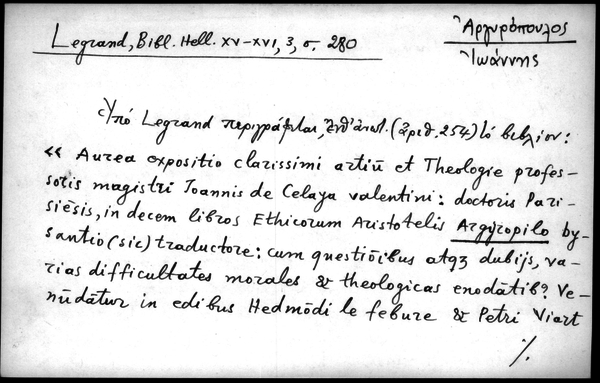 Legrand, Bibl. Hell. XV-XVI, 3, σ. 280
Ἀργυρόπουλος
Ἰωάννης
Ὑπό Legrand περιγράφεται, ἐνθ' ἀνωτ. (ἀριθ. 254) τό βιβλίον:
« Aurea expositio clarissimi artiū et Theologie profes-
soris magistri Joannis de Celaya valentini: doctoris Pari-
siēsis, in decem libros Ethicorum Aristotelis Argyropilo by-
santio (sic) traductore: cum questiōibus atqȝ dubijs, va-
rias difficultates morales & theologicas enodātibꝰ Ve-
nūdātur in edibus Hedmōdi le febure & Petri Viart
./.